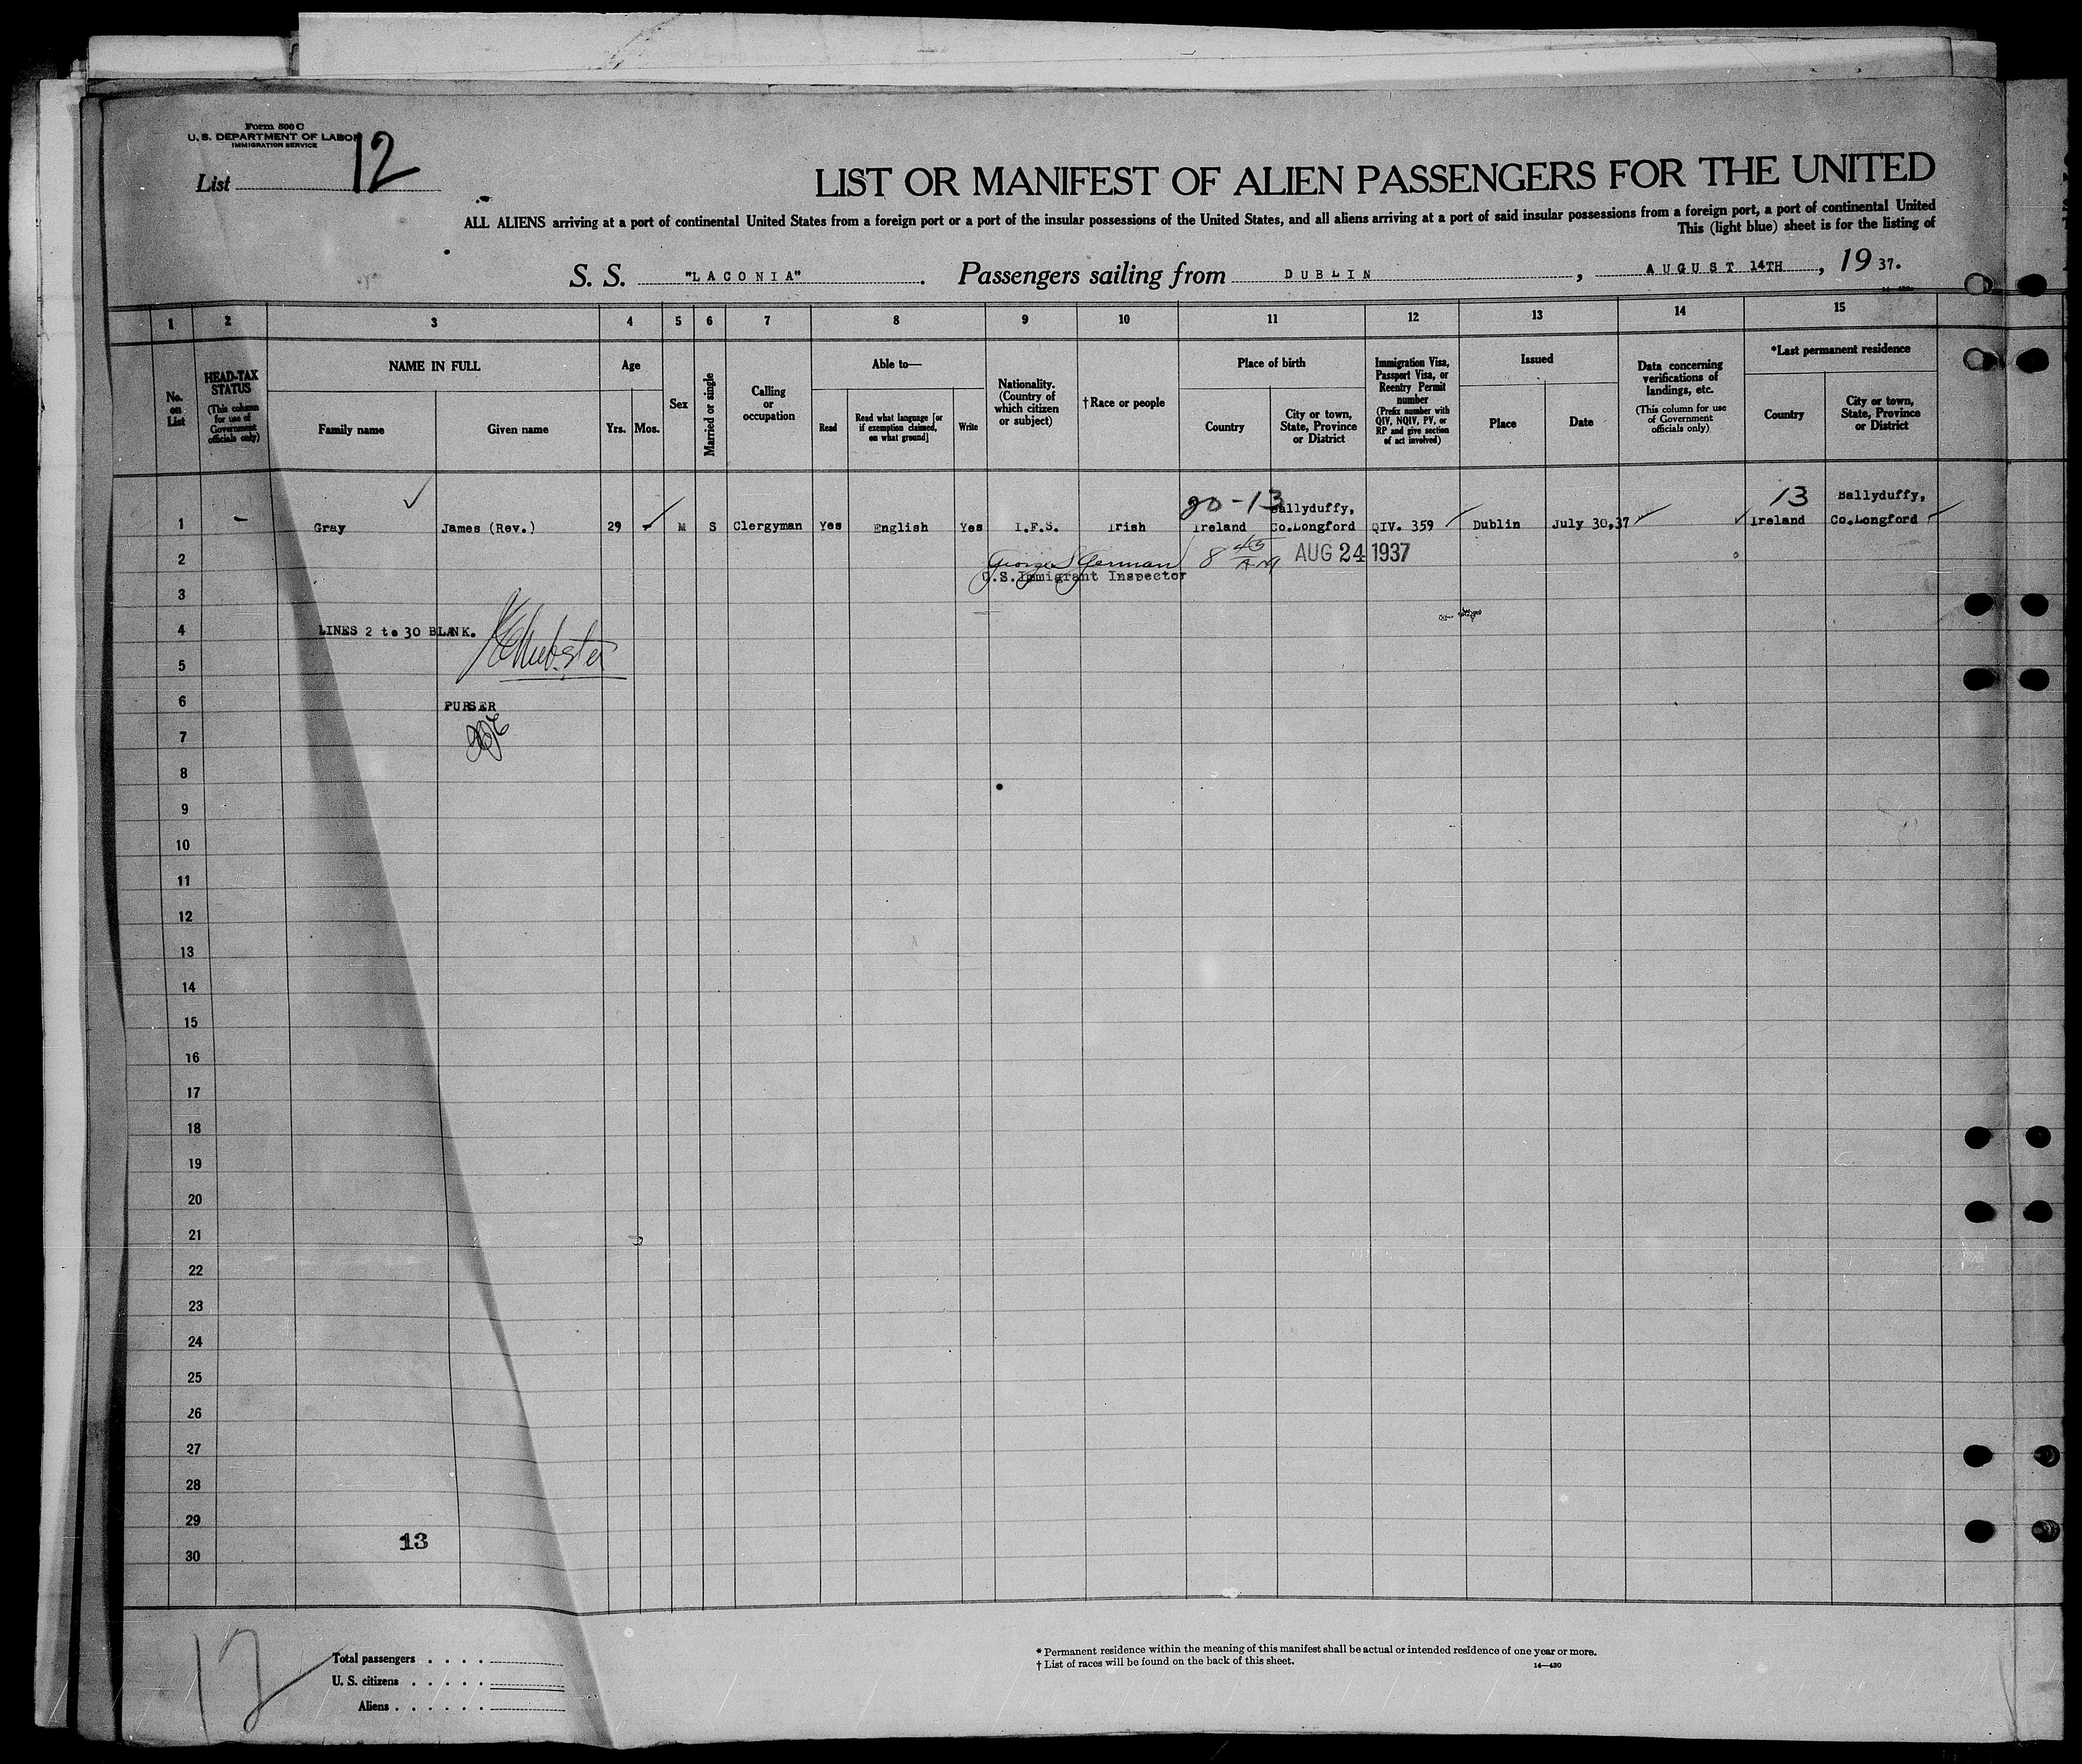 Form 500 C
U. S. DEPARTMENT OF LABOR
IMMIGRATION SERVICE
List 12
LIST OR MANIFEST OF ALIEN PASSENGERS FOR THE UNITED
ALL ALIENS arriving at a port of continental United States from a foreign port or a port of the insular possessions of the United States, and all aliens arriving at a port of said insular possessions from a foreign port, a port of continental United
This (light blue) sheet is for the listing of
S. S. "LACONIA". Passengers sailing from DUBLIN, AUGUST 14TH, 19 37.
1 2 3 4 5 6 7 8 9 10 11 12 13 14 15
No. on List
HEAD-TAX STATUS
(This column for use of Government officials only)
NAME IN FULL
Family name
Given name
Age
Yrs. Mos.
Sex
Married or single
Calling or occupation
Able to—
Read
Read what language [or if exemption claimed, on what ground]
Write
Nationality. (Country of which citizen or subject)
†Race or people
Place of birth
Country
City or town, State, Province or District
Immigration Visa, Passport Visa, or Reentry Permit number
(Prefix number with QIV, NQIV, PV, or RP and give section of act involved)
Issued
Place
Date
Data concerning verifications of landings, etc.
(This column for use of Government officials only)
*Last permanent residence
Country
City or town, State, Province or District
20-13 Ballyduffy, 13 Ballyduffy,
1 Gray James (Rev.) 29 M S Clergyman Yes English Yes I.F.S. Irish Ireland Co.Longford QIV. 359 Dublin July 30,37 Ireland Co.Longford
2 George S German 8 45 AM AUG 24 1937
U.S.Immigrant Inspector
3
4 LINES 2 to 30 BLANK.
5
6 PURSER
7
8
9
10
11
12
13
14
15
16
17
18
19
20
21
22
23
24
25
26
27
28
29
13
30
12
Total passengers . . . .
U. S. citizens . . . . .
Aliens . . . . . .
* Permanent residence within the meaning of this manifest shall be actual or intended residence of one year or more.
† List of races will be found on the back of this sheet.
14—430